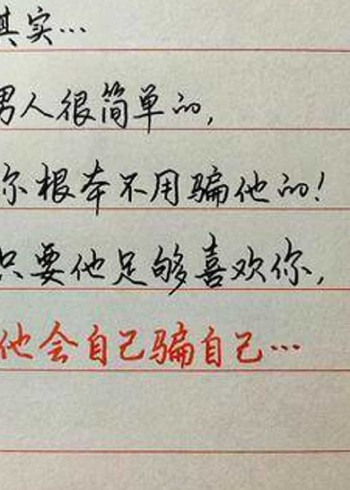 其实…
男人很简单的,
你根本不用骗他的!
只要他足够喜欢你,
他会自己骗自己…